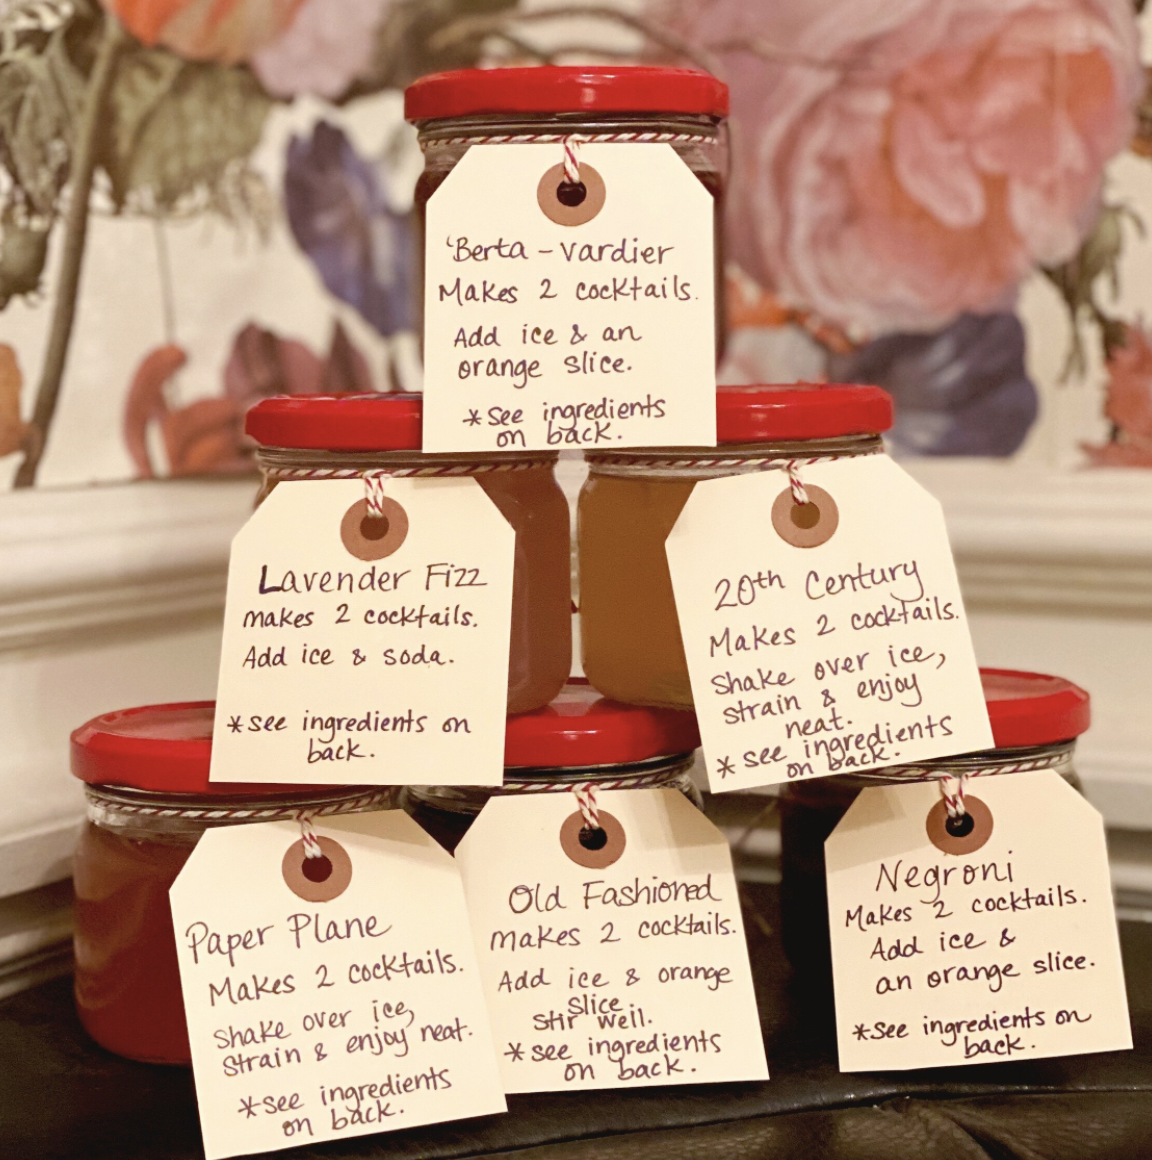 'Berta - vardier
Makes 2 cocktails.
Add ice & an
orange slice.
*see ingredients
on back.
Lavender Fizz
makes 2 cocktails.
Add ice & soda.
*see ingredients on
back.
20th Century
Makes 2 cocktails.
Shake over ice,
strain & enjoy
neat.
*see ingredients
on back.
Paper Plane
Makes 2 cocktails.
Shake over ice,
strain & enjoy neat.
*see ingredients
on back.
Old Fashioned
makes 2 cocktails.
Add ice & orange
slice.
stir well.
*see ingredients
on back.
Negroni
Makes 2 cocktails.
Add ice &
an orange slice.
*see ingredients on
back.